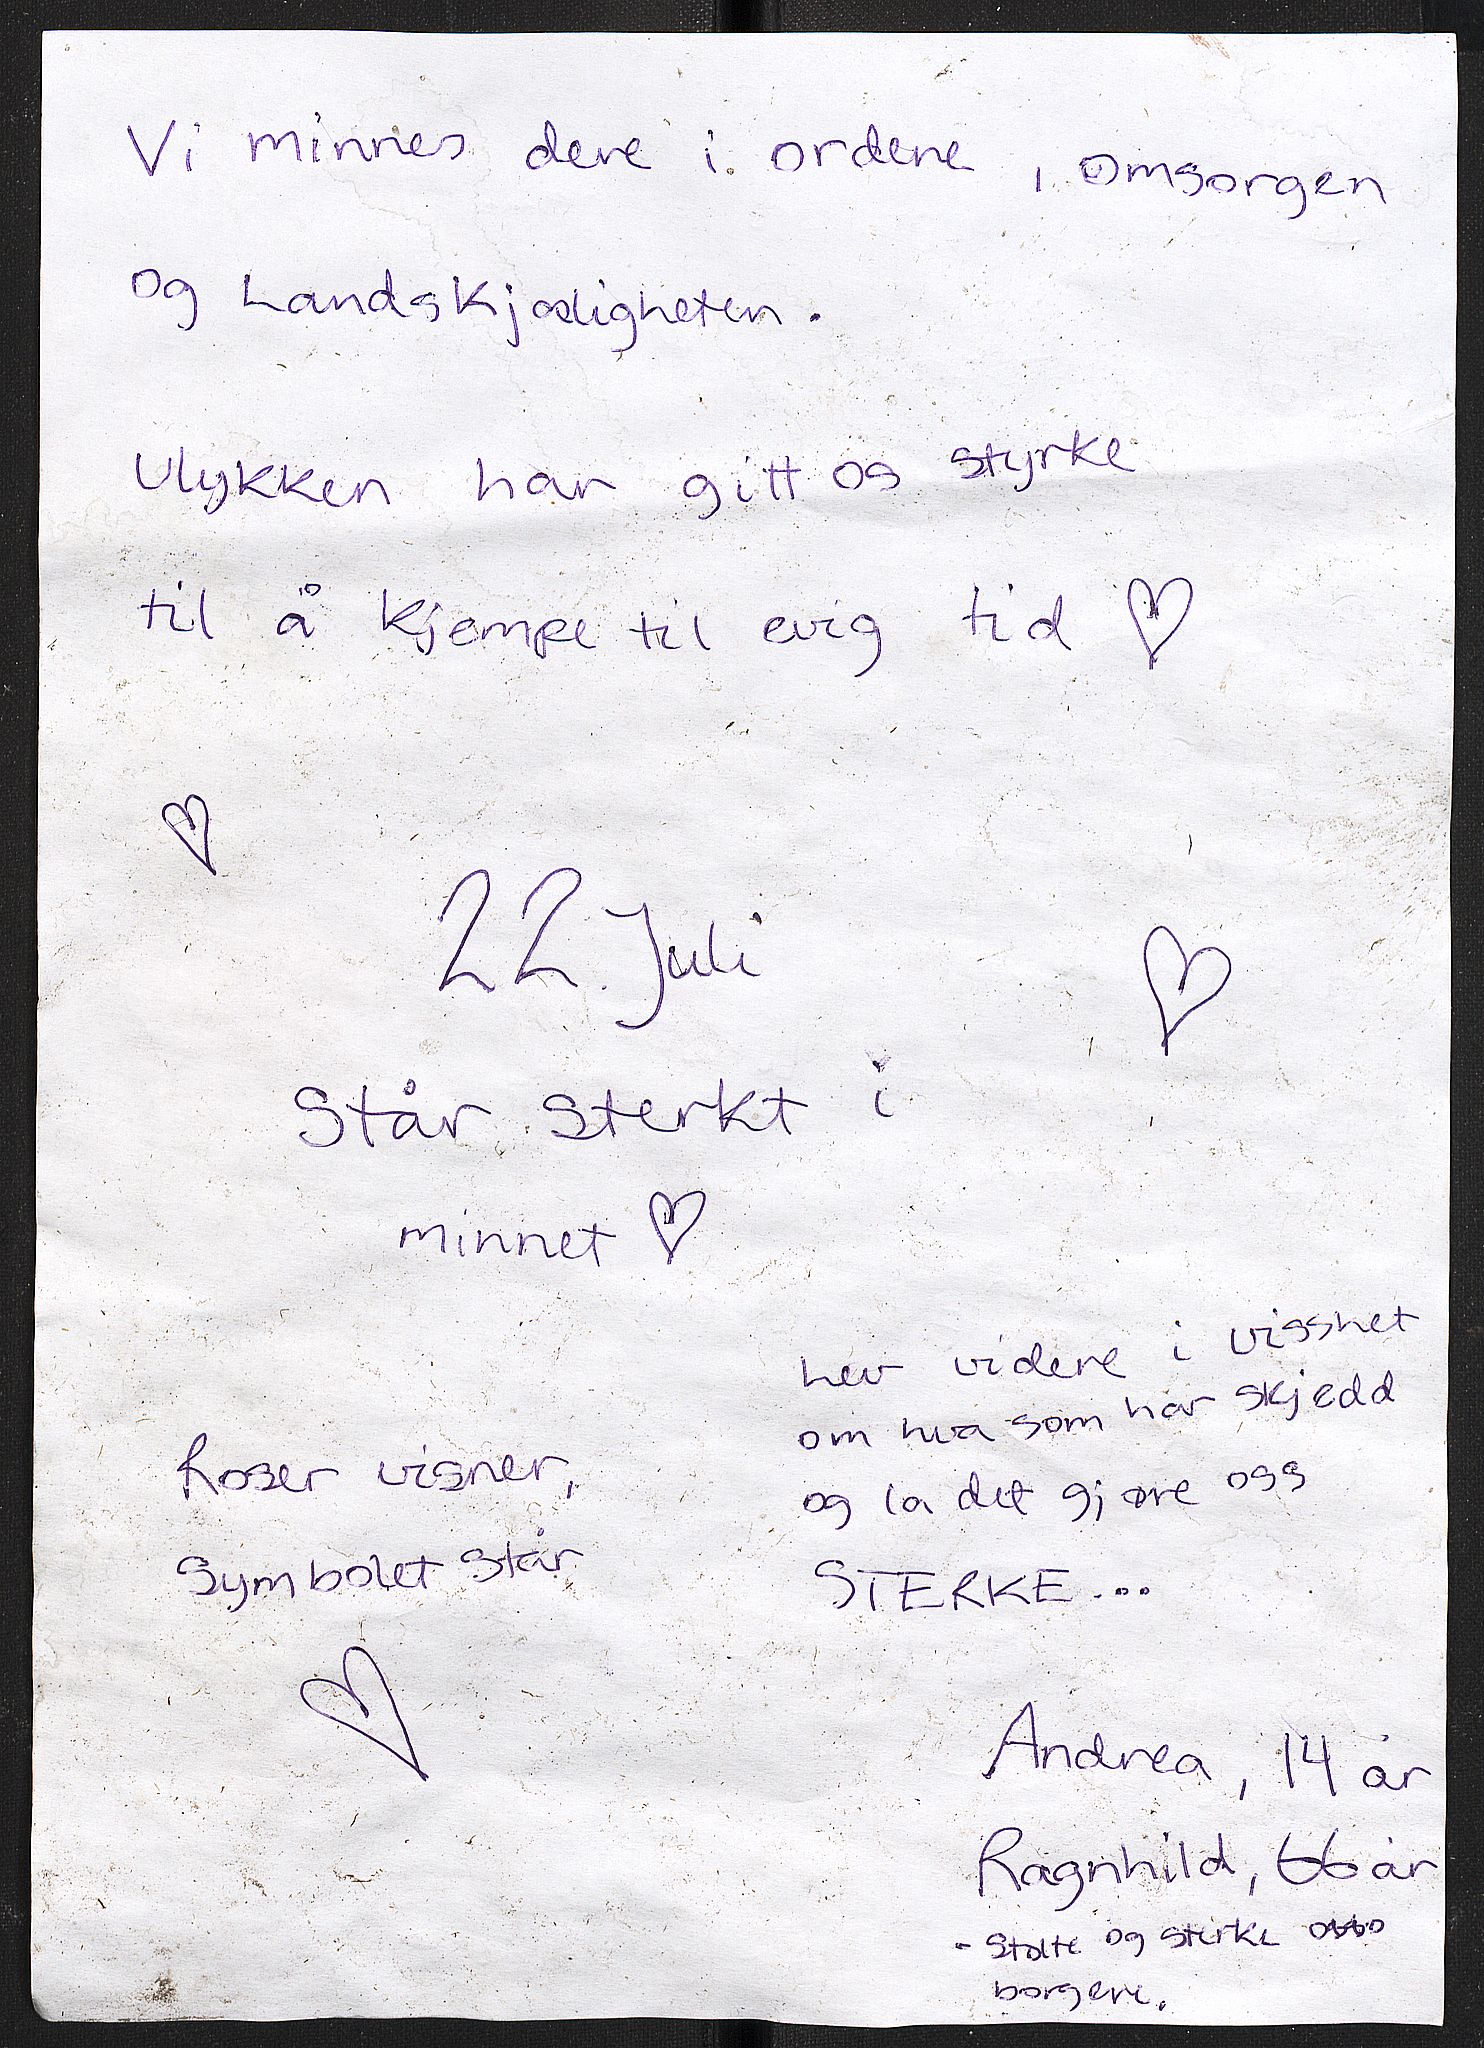 Vi minnes dere i ordene, omsorgen
og Landskjærligheten.
Ulykken har gitt os styrke
til å kjempe til evig tid ♡
22. Juli
Står sterkt i
minnet ♡
Roser visner,
Symbolet står
Lev videre i visshet
om hva som har skjedd
og la det gjøre oss
STERKE...
Andrea, 14 år
Ragnhild, 66 år
- Stolte og sterke
borgere.